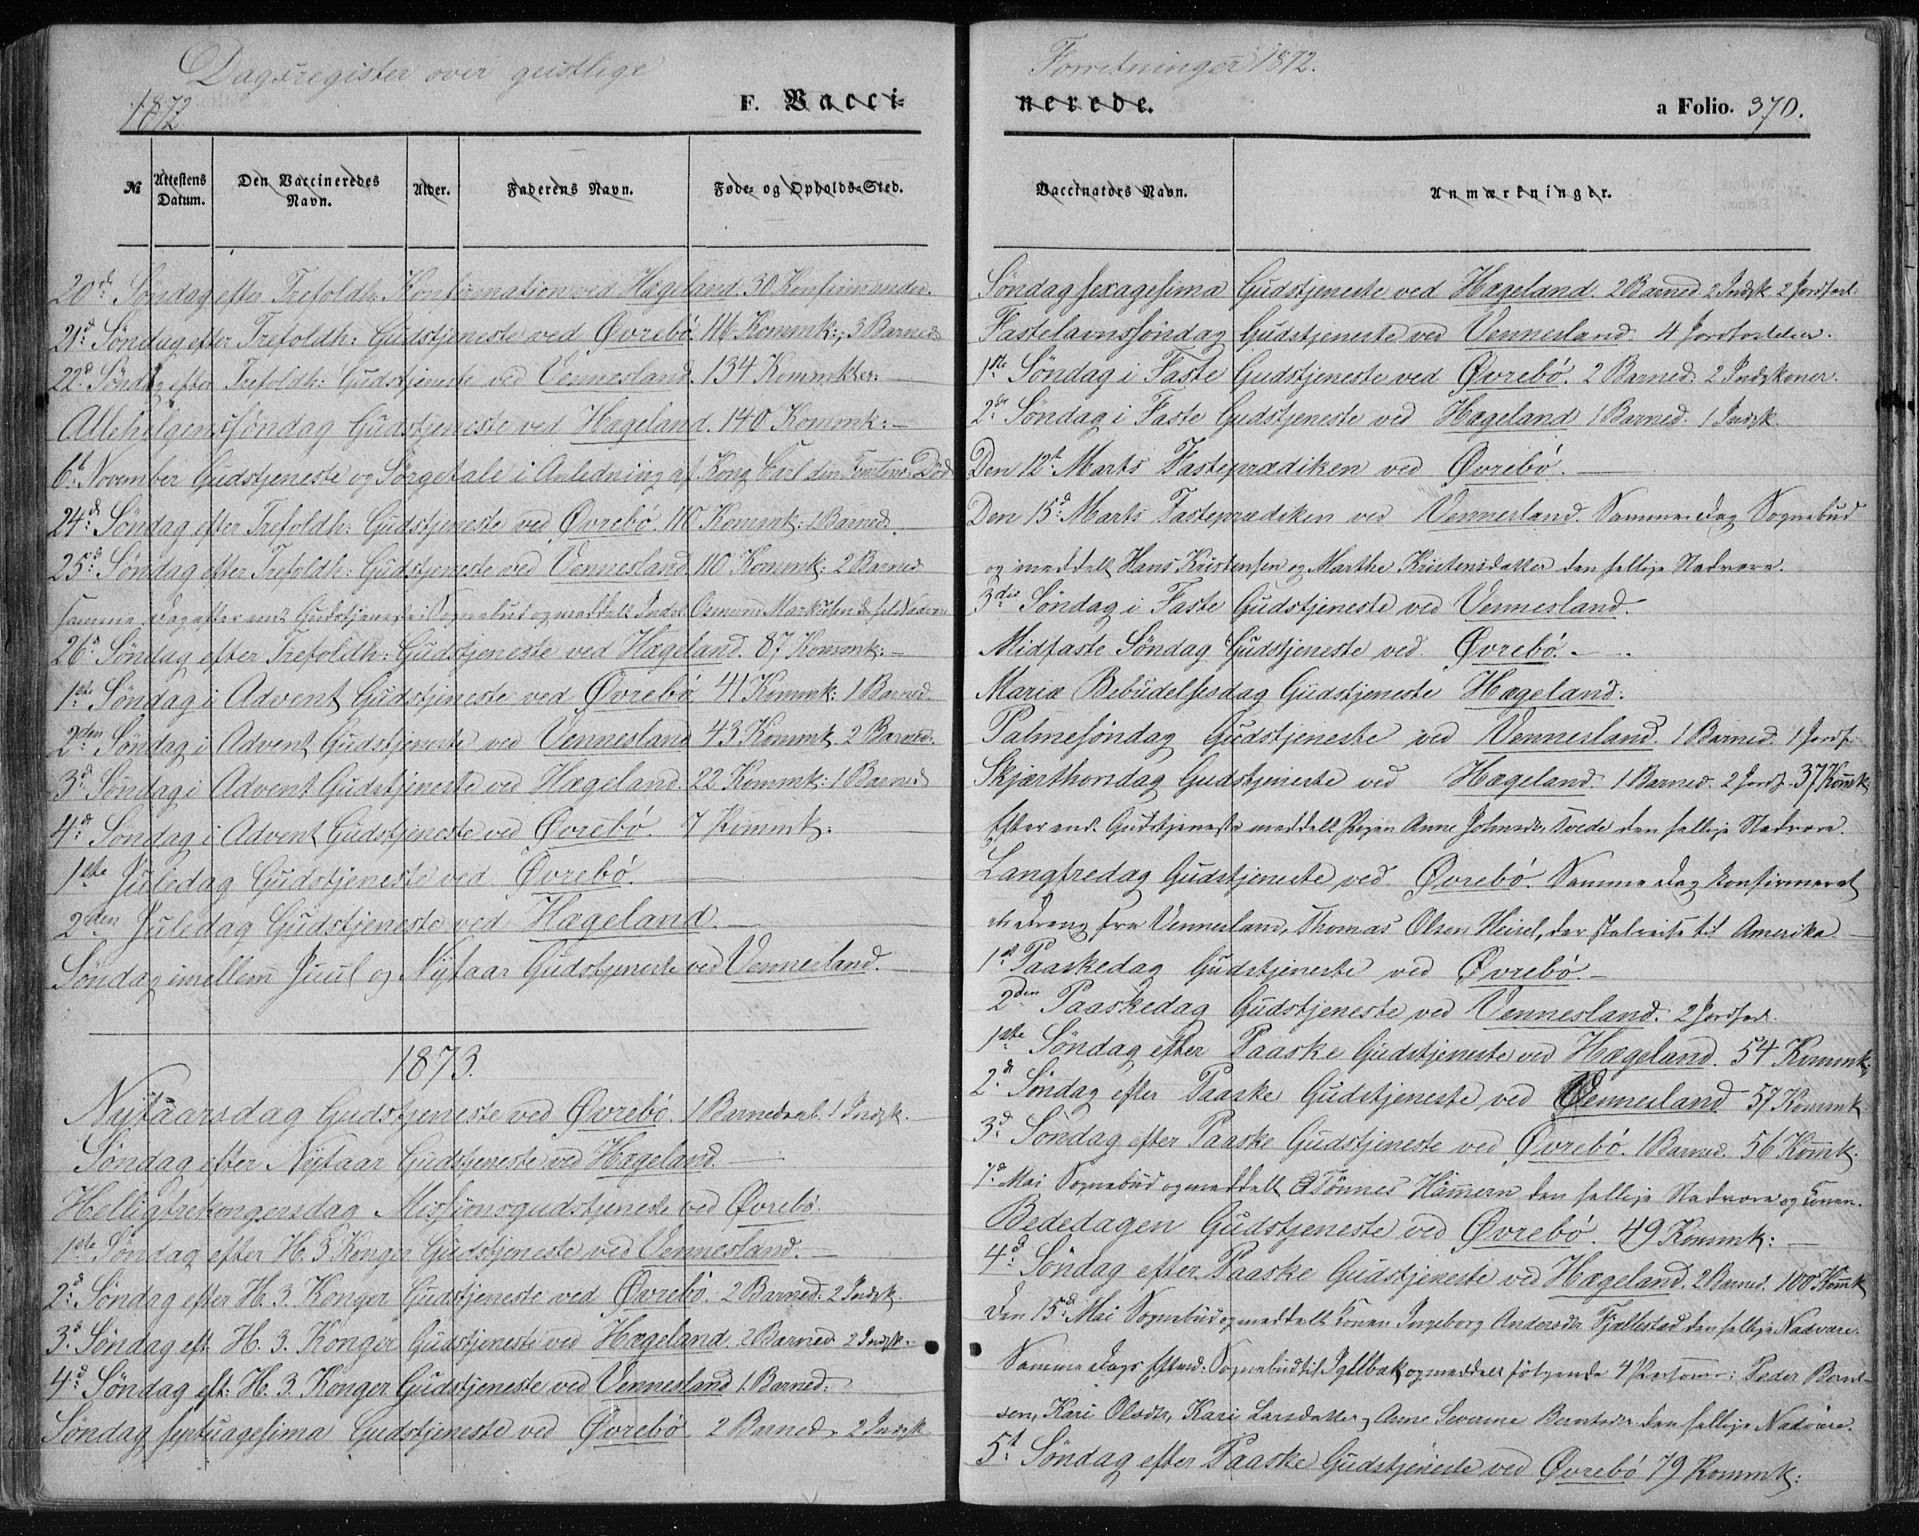 Dagsregister over geistlige
1872
F. Vacci-
№
Attestens Datum.
Den Vaccineredes Navn.
Alder.
Faderens Navn.
Føde- og Opholds-Sted.
20d Søndag efter Trefoldh: Konfirmation ved Hægeland. 30 Konfirmander.
21d Søndag efter Trefoldh: Gudstjeneste ved Øvrebö. 116 Kommk:, 3 Barned
22d Søndag efter Trefoldh: Gudstjeneste ved Vennesland. 134 Kommkter.
Allehelgenssøndag Gudstjeneste ved Hægeland. 140 Kommk:
6t November Gudstjeneste og Sørgetale i Anledning af Kong Carl den Femtens Död
24d Søndag efter Trefoldh: Gudstjeneste ved Øvrebö. 110 Kommk: 1 Barned.
25d Søndag efter Trefoldh: Gudstjeneste ved Vennesland. 110 Kommk: 2 Barned
samme Dag efter endt Gudstjeneste i Sognebud og meddelt Osmund Markusen Nadvere
26d Søndag efter Trefoldh: Gudstjeneste ved Hægeland. 87 Kommk:
1ste Søndag i Advent Gudstjeneste ved Øvrebö 41 Kommk: 1 Barned.
2den Søndag i Advent Gudstjeneste ved Vennesland 43 Kommk. 2 Barned.
3d Søndag i Advent Gudstjeneste ved Hægeland. 22 Kommk: 1 Barned
4d Søndag i Advent Gudstjeneste ved Øvrebö. 7 Kommk:
1ste Juledag Gudstjeneste ved Øvrebö.
2den Juledag Gudstjeneste ved Hægeland.
Søndag imellem Juul og Nytaar Gudstjeneste ved Vennesland.
1873.
Nytaarsdag Gudstjeneste ved Øvrebö. 1 Barnedaab. 1 Indsk.
Søndag efter Nytaar Gudstjeneste ved Hægeland.
Helligtrekongersdag Missionsgudstjeneste ved Øvrebö.
1ste Søndag efter H. 3 Konger Gudstjeneste ved Vennesland.
2d Søndag efter H. 3. Konger Gudstjeneste ved Øvrebö. 2 Barned: 2 Indsk.
3d Søndag eft. H. 3. Konger Gudstjeneste ved Hægeland. 2 Barned 2 Indsk.
4d Søndag eft: H. 3. Konger Gudstjeneste ved Vennesland 1 Barned:
Søndag septuagesima Gudstjeneste ved Øvrebö 2 Barned. 2 Indsk
Forretninger 1872.
nerede.
a Folio. 370.
Vaccinators Navn.
Anmærkninger.
Søndag sexagesima Gudstjeneste ved Hægeland. 2 Barned. 2 Indsk 2 Jordfest.
Fastelavnssøndag Gudstjeneste ved Vennesland. 4 Jordfestelser.
1ste Søndag i Faste Gudstjeneste ved Øvrebö. 2 Barned. 2 Indskoner.
2d Søndag i Faste Gudstjeneste ved Hægeland 1 Barned. 1 Indsk.
Den 12t Marts Fasteprædiken ved Øvrebö.
Den 15d Marts Fasteprædiken ved Vennesland. Samme Dag Sognebud
og meddelt Hans Kristensen og Marthe Kristensdatter den hellige Nadvere.
3die Søndag i Faste Gudstjeneste ved Vennesland.
Midfaste Søndag Gudstjeneste ved Øvrebö.
Mariæ Bebudelsesdag Gudstjeneste Hægeland.
Palmesøndag Gudstjeneste ved Vennesland. 1 Barned. 1 Jordf.
Skjærthorsdag Gudstjeneste ved Hægeland. 1 Barned. 2 Jordf. 37 Komk
Efter endt Gudstjeneste meddelt Pigen Anne Johnsdr. den hellige Nadvere.
Langfredag Gudstjeneste ved Øvrebö. Samme Dag konfirmeret
en Dreng fra Vennesland, Thomas Olsen Heisel, der skal reise til Amerika.
1st Paaskedag Gudstjeneste ved Øvrebö.
2den Paaskedag Gudstjeneste ved Vennesland. 2 Jordfest.
1ste Søndag efter Paaske Gudstjeneste ved Hægeland. 54 Kommk:
2d Søndag efter Paaske Gudstjeneste ved Vennesland 57 Kommk
3d Søndag efter Paaske Gudstjeneste ved Øvrebö. 1 Barned. 56 Komk.
7d Mai Sognebud og meddelt Tönnes Hammern den hellige Nadvere og Konen.
Bededagen Gudstjeneste ved Øvrebö. 49 Kommk:
4d Søndag efter Paaske Gudstjeneste ved Hægeland. 2 Barned. 100 Komk
Den 15d Mai Sognebud og meddelt Konen Ingeborg Andersdr Fjællestad den hellige Nadvere.
Samme Dags Efterm. Sognebud til og meddelt følgende 4 Personer: Peder Bernt-
sen, Kari Olsdtr, Kari Larsdatter og Anne Severine Berntsdtr den hellige Nadvere.
5t Søndag efter Paaske Gudstjeneste ved Øvrebö 79 Kommk: